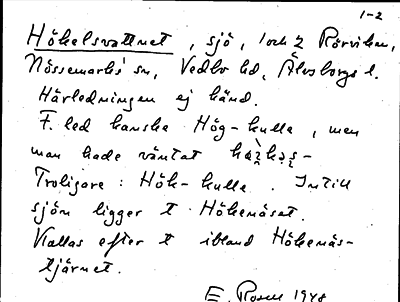 1-2
Hökelsvattnet, sjö, 1 och 2 Rörviken,
Nössemarks sn, Vedbo hd, Älvsborgs l.
Härledningen ej känd.
F. led kanske Hög-kulle, men
man hade väntat
Troligare: Hök-kulle. Intill
sjön ligger t Hökenäset.
Kallas efter t ibland Hökenäs-
tjärnet.
E. Rosell 1948